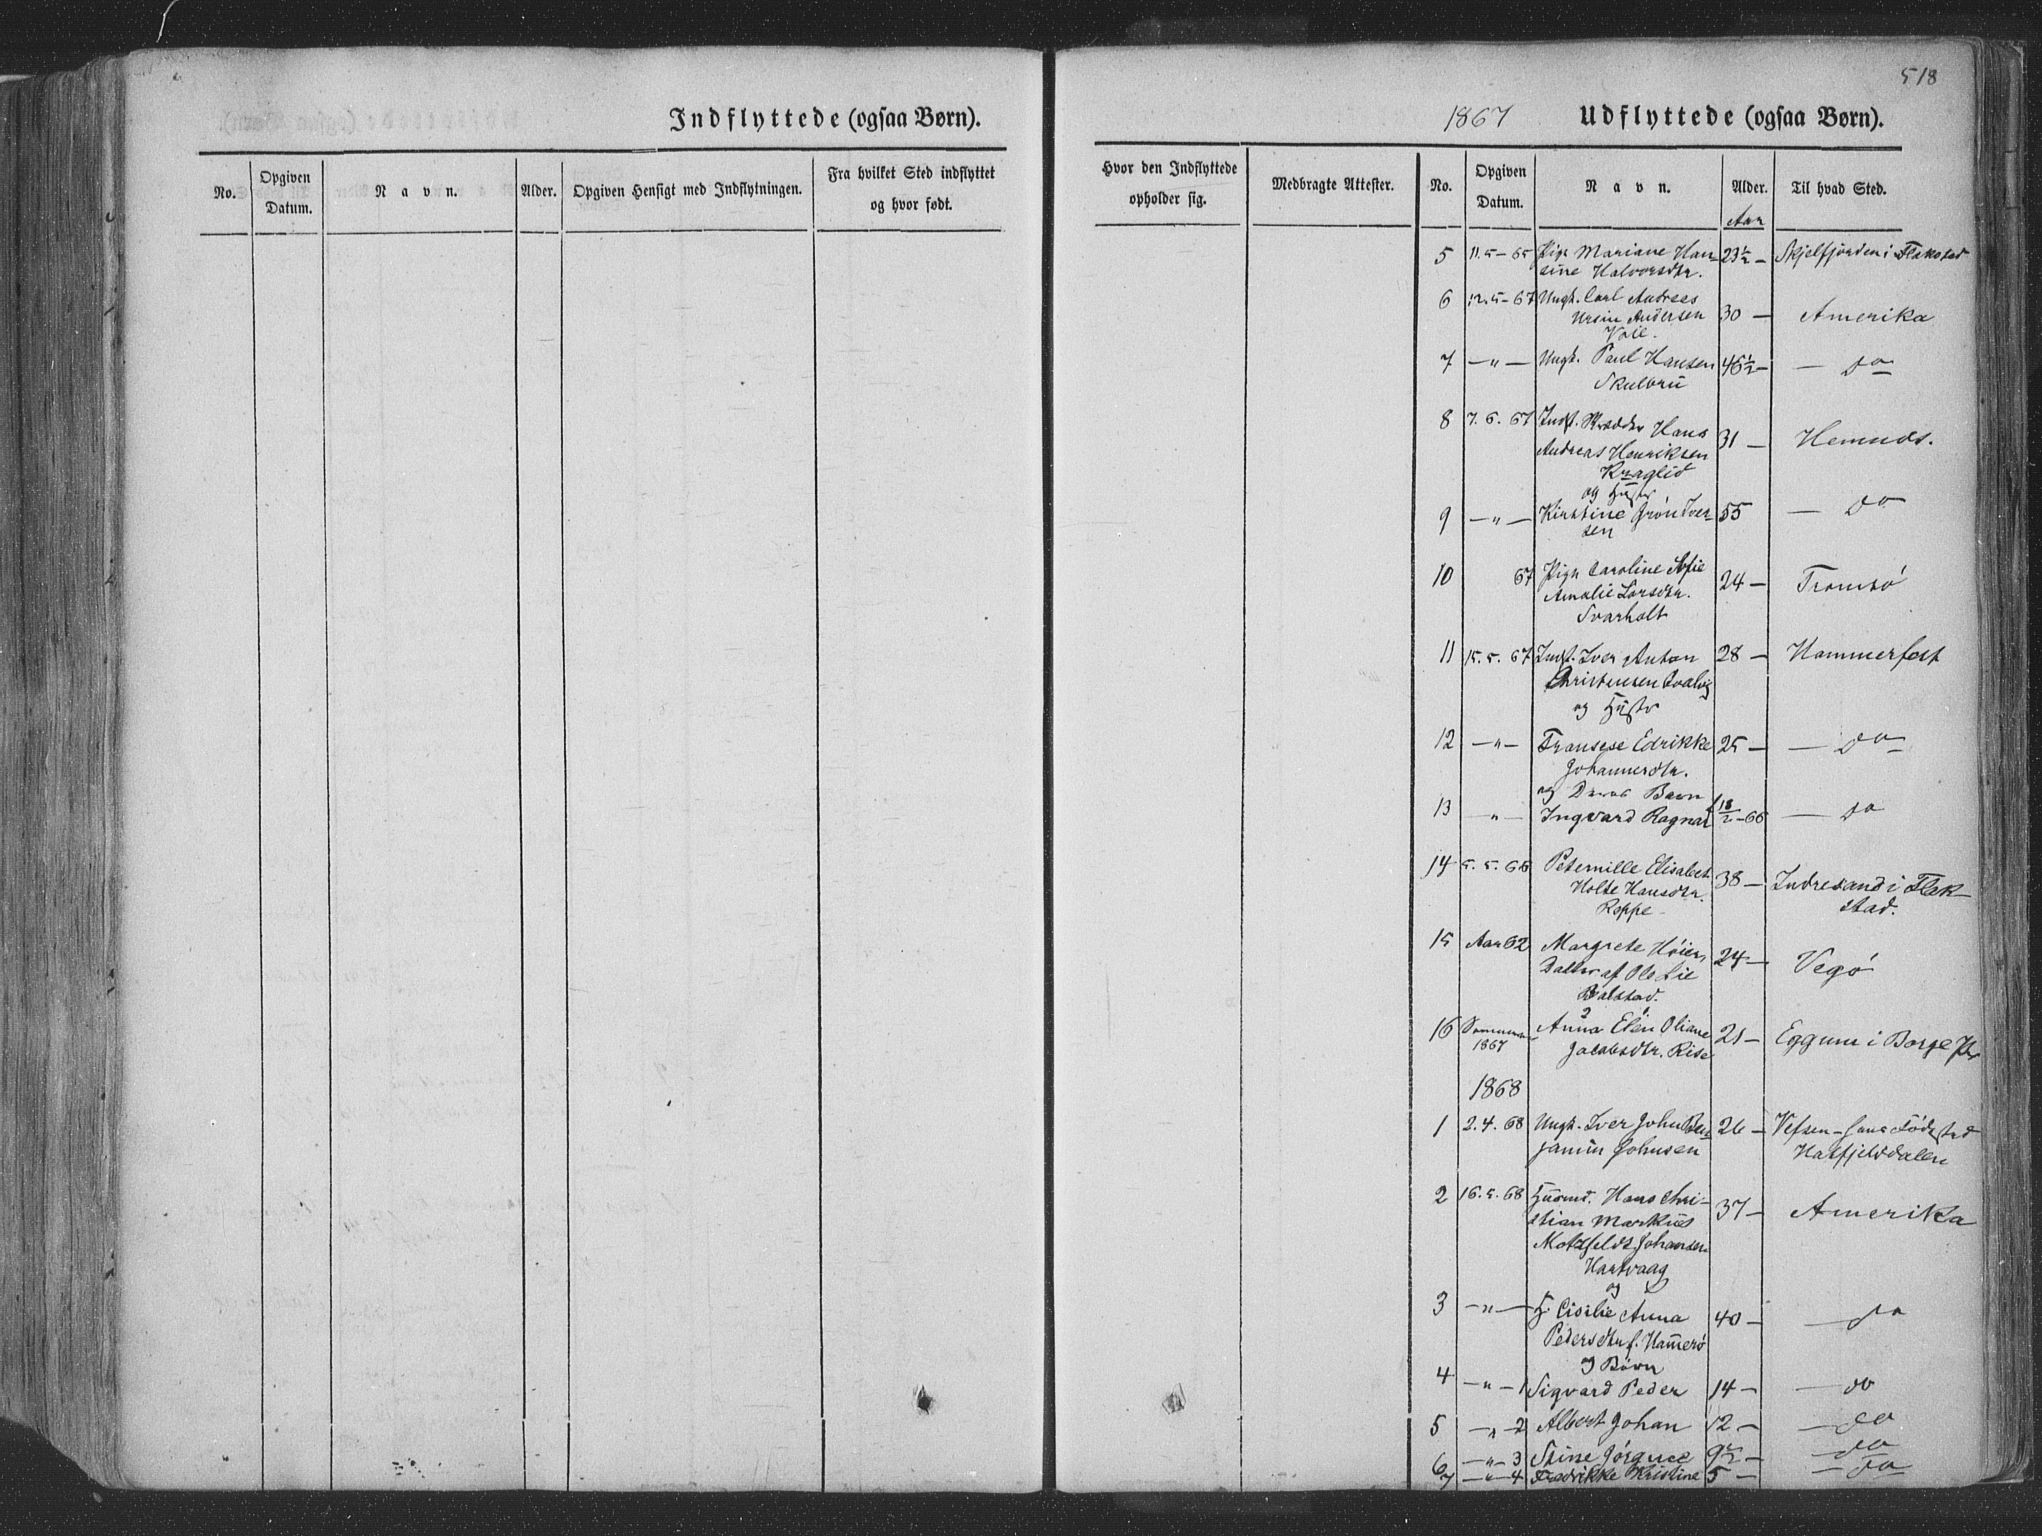 518
Indflyttede (ogsaa Børn).
No.
Opgiven Datum.
Navn.
Alder.
Opgiven Hensigt med Indflytningen.
Fra hvilket Sted indflyttet og hvor født.
1867 Udflyttede (ogsaa Børn).
Hvor den Indflyttede opholder sig.
Medbragte Attester.
No.
Opgiven Datum.
Navn.
Alder.
Aar
Til hvad Sted.
5 11.5-65 Pige Mariane Han- 23½ - Skjelfjorden i Flakstad
sine Halvorsdtr.
6 12.5-67 Ungk. Carl Andreas
Ursin Andersen 30 - Amerika
Voie.
7 -"- Ungk. Paul Hansen 46½ - - do -
Skulbru
8 7.6.67 Indst. Hans
Andreas Henriksen 31 - Hemnds.
Kraglid
og Hustr
9 -"- Kirstine Grøn Iver- 55 - do
sen
10 67 Pige Caroline Sofie
Amalie Larsdtr. 24 - Tromsø
Svarholt
11 15.5.67 Indst. Iver Anton 28 - Hammerfest
Christensen
og Hustr
12 -"- Fransese Edrikke 25 - - do -
Johannesdtr.
og Deres Barn
13 -"- Ingvard Ragnar f 18/2-66 - do
14 5.5.66 Peternille Elisabet
Holte Hansdtr. 38 - Indresand i Flak-
Reppe stad.
15 Aar 62 Margrete Høier,
Datter af Ole Lie 24 - Vegø
Balstad.
16 Sommeren Anna Elen Oliane 21 - Eggum i Borge
1867 Jacobsdtr. Rise
1868
1 2.4.68 Ungk. Iver John Ben- 26 - Vefsen - Fødested
jamin Johnsen Hatfjelddalen
2 16.5.68 Husmd. Hans Chri-
stian Markus 37 - Amerika
Motzfeldt Johansen
Hartvaag
og
3 -"- H. Cisilie Anna 40 - - do
Pedersdtr f. Hamerø
og Børn
4 -"- 1 Sigvard Peder 14 - - do
5 -"- 2 Albert Johan 12 - - do
6 -"- 3 Stine Jørgine 9½ - - do
7 -"- 4 Fredrikke Kristine 5 - - do